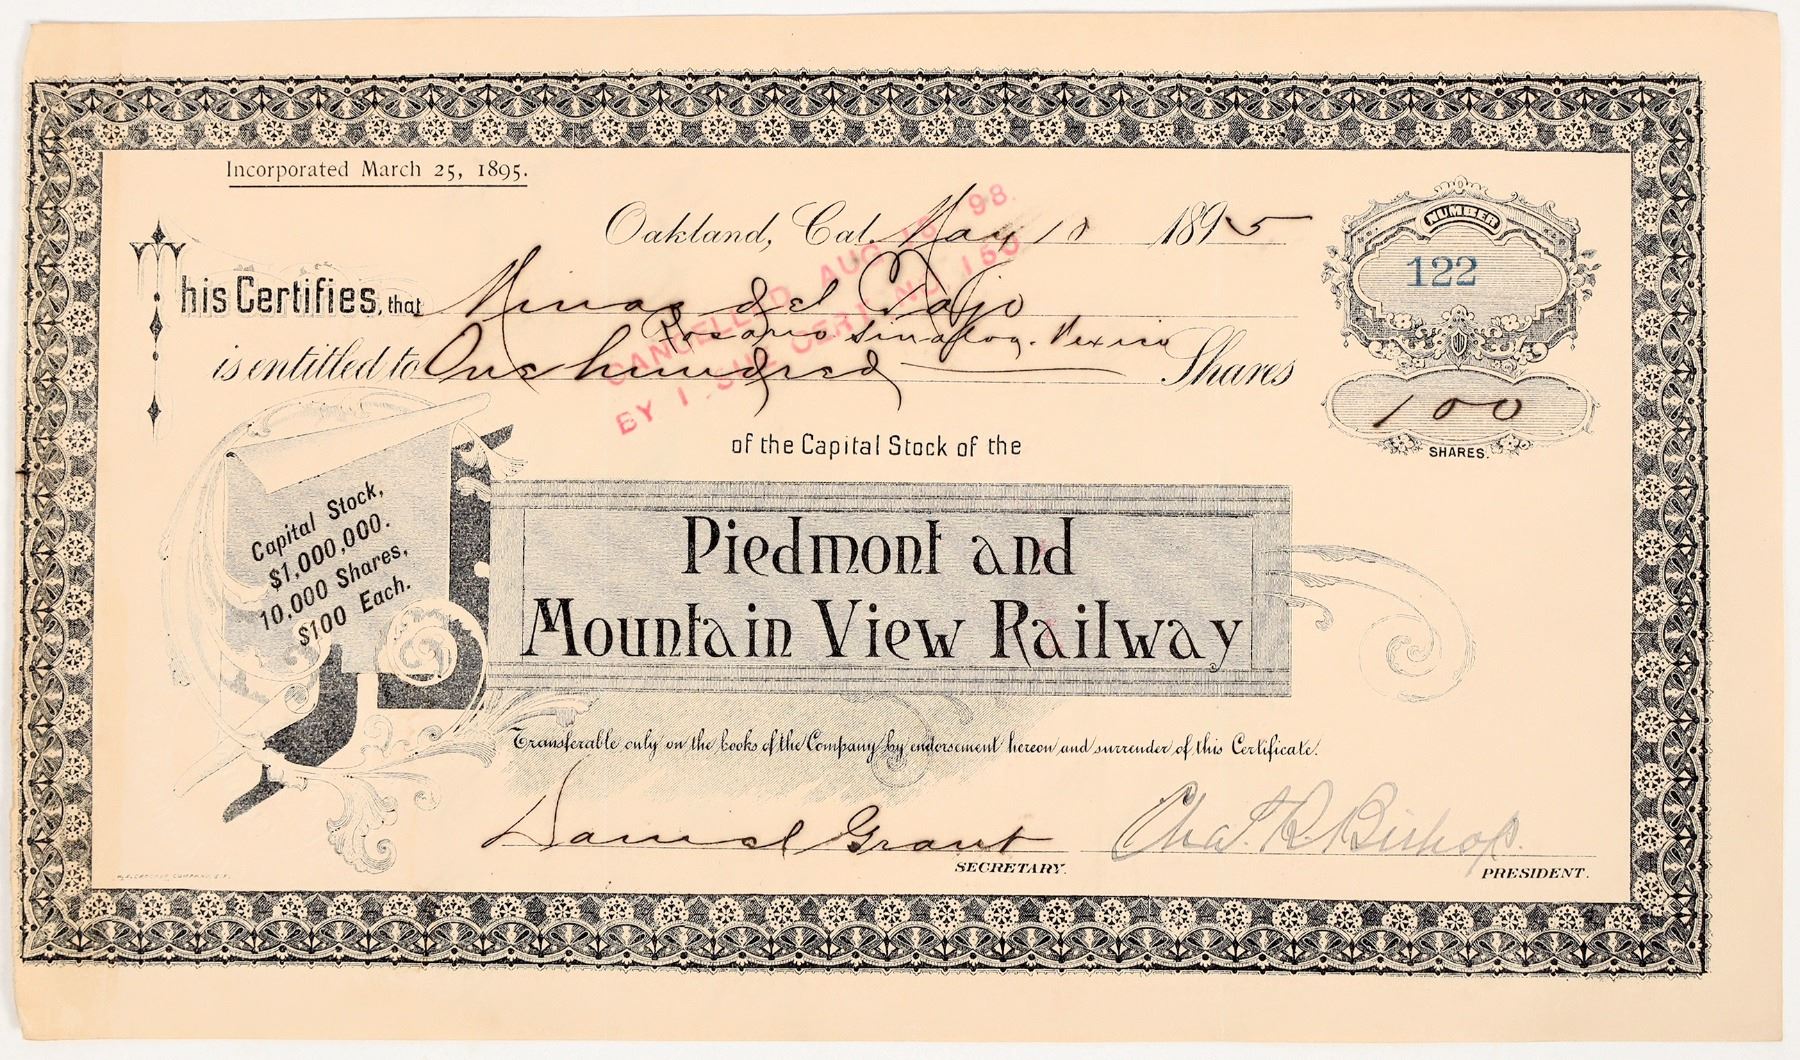 Incorporated March 25, 1895.
Oakland, Cal. May 10 1895
NUMBER
122
This Certifies, that Minas del Tajo
Rosario Sinaloa. Mexico
is entitled to One hundred Shares
100
SHARES.
CANCELLED AUG 16 98.
BY I SUE CERT NO 150
of the Capital Stock of the
Capital Stock,
$1,000,000.
10,000 Shares,
$100 Each.
Piedmont and
Mountain View Railway
Transferable only on the books of the Company by endorsement hereon and surrender of this Certificate.
Samuel Grant Chas. R. Bishop.
SECRETARY. PRESIDENT.